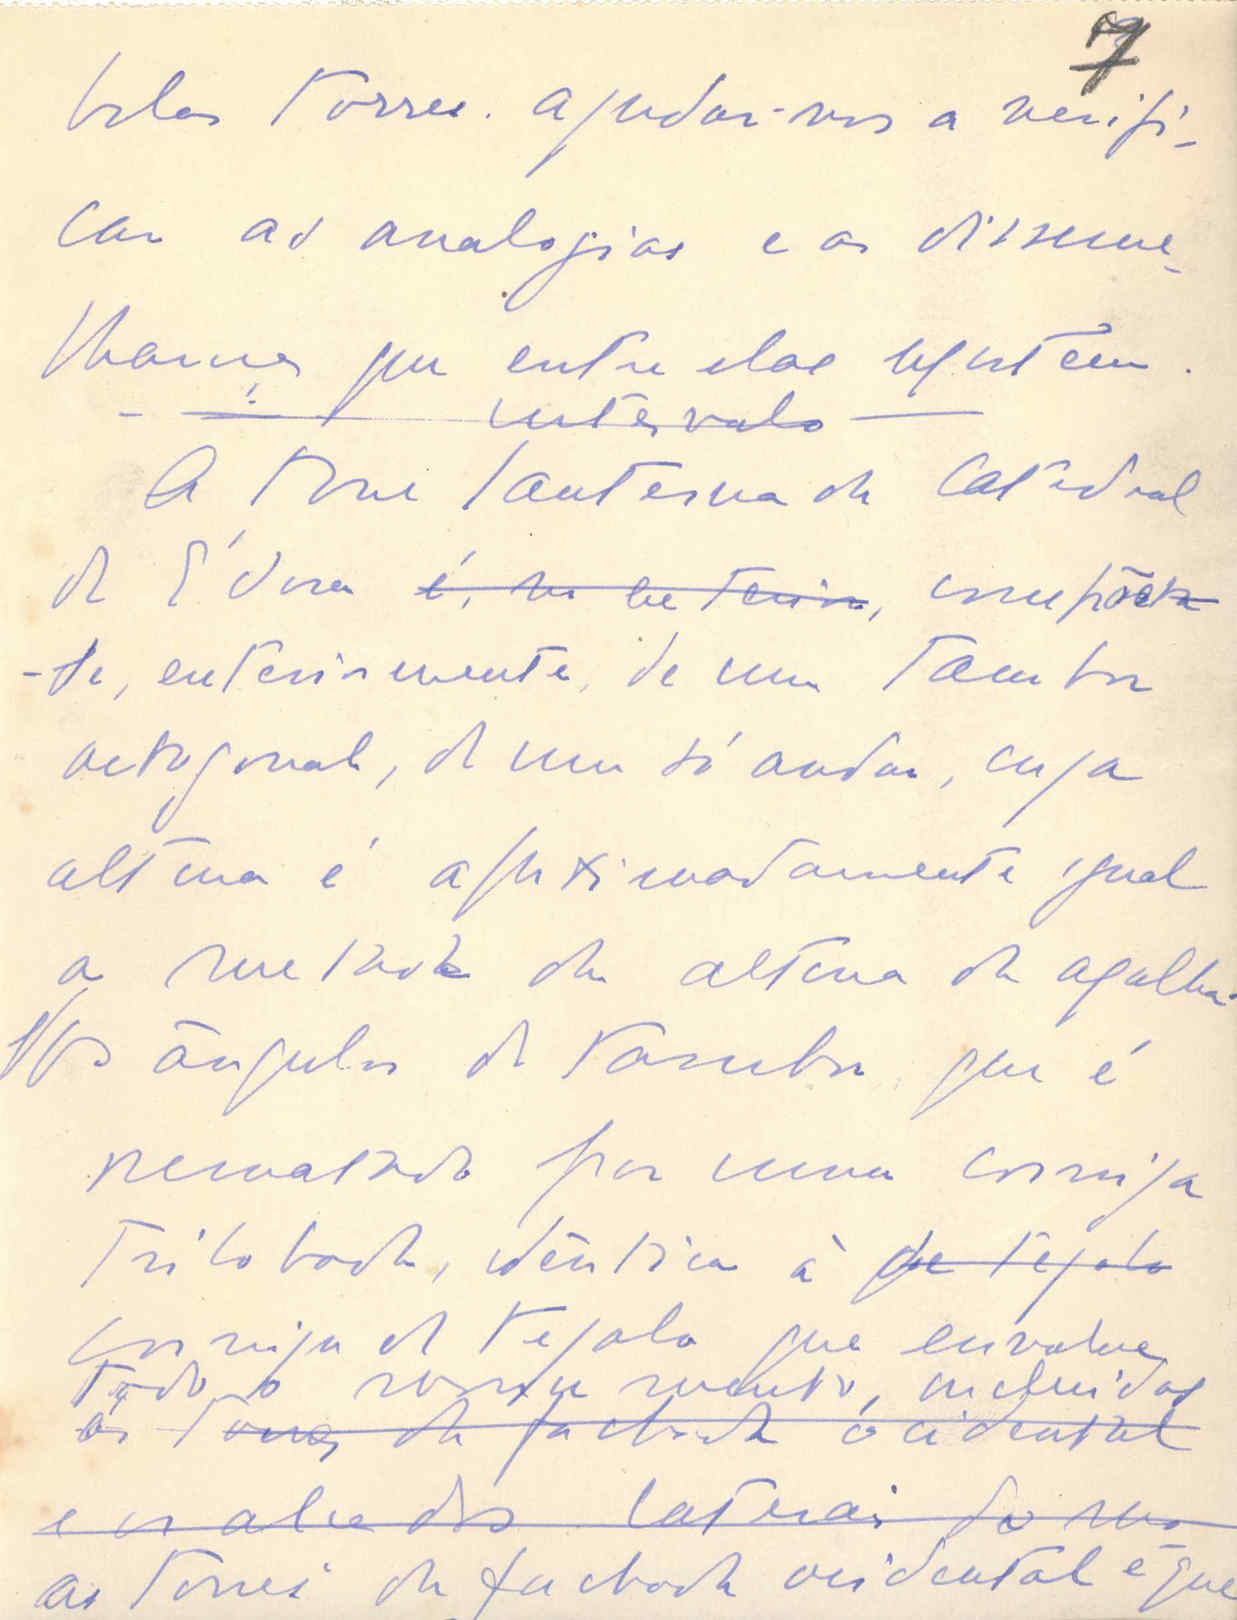 7
belas torres. ajudar-nos a verifi-
car as analogias e as disseme-
lhanças que entre elas existem.
intervalo
A torre lanterna da Catedral
de Évora é, no exterior, compõe
-se, exteriormente, de um tambor
octogonal, de um só andar, cuja
altura é aproximadamente igual
a metade da altura da agulha.
Os ângulos do tambor que é
rematado por uma cornija
trilobada, idêntica à de tijolo
cornija de tijolo que envolve
todo o monumento, incluidas
as torres da fachada ocidental
e os laterais do
as torres da fachada ocidental e que